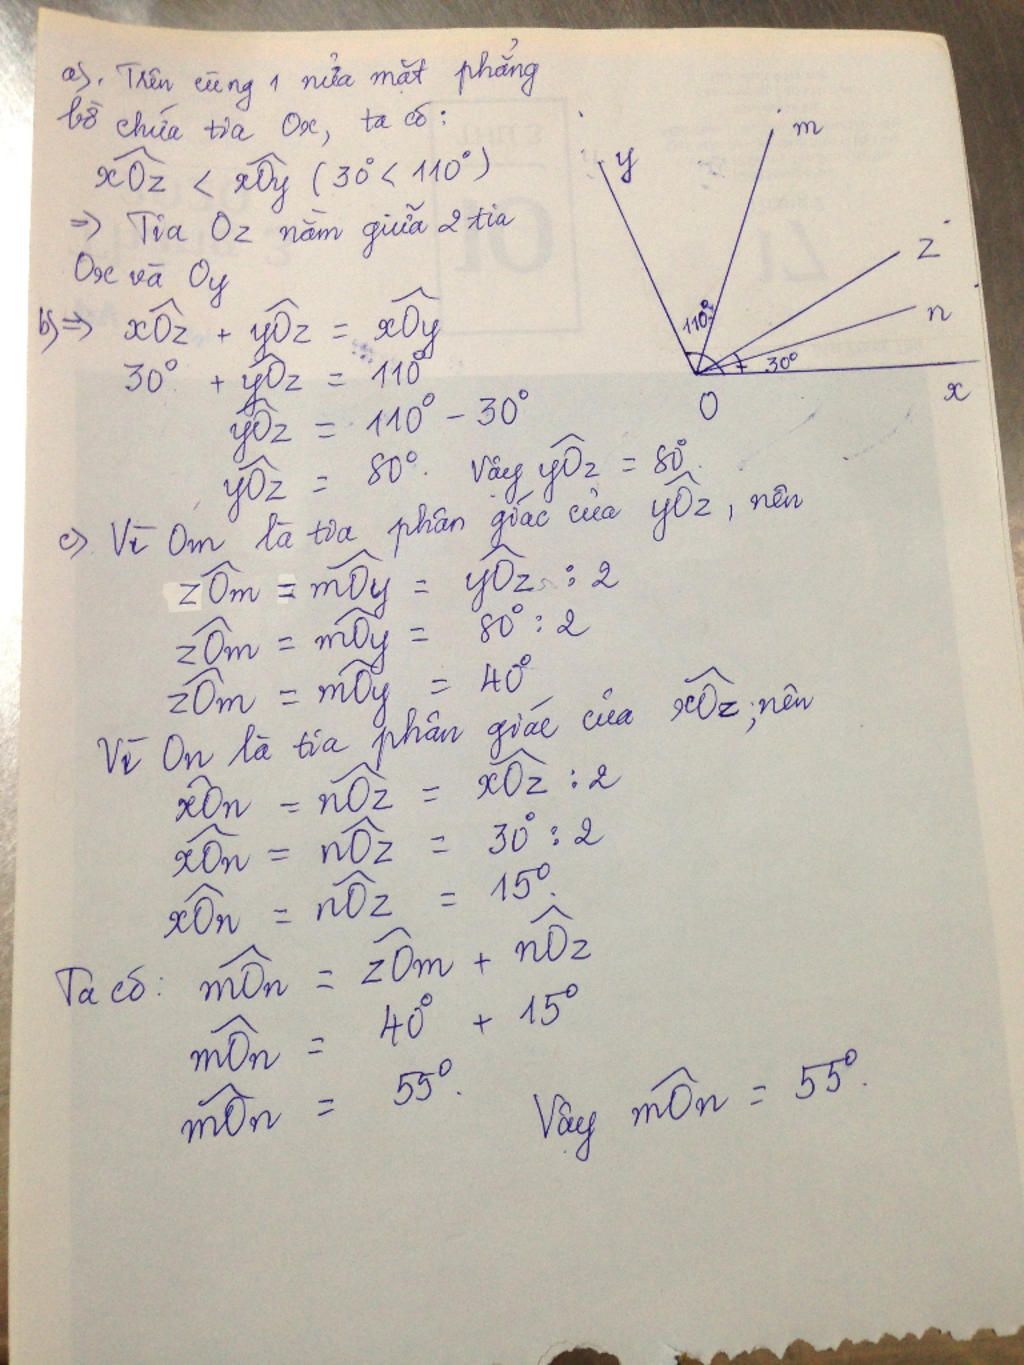 a). Trên cùng 1 nửa mặt phẳng
bờ chứa tia Ox, ta có:
xÔz < xÔy (30° < 110°)
=> Tia Oz nằm giữa 2 tia
Ox và Oy
b) => xÔz + yÔz = xÔy
30° + yÔz = 110°
yÔz = 110° - 30°
yÔz = 80°. Vậy yÔz = 80°.
c) Vì Om là tia phân giác của yÔz, nên
zÔm = mÔy = yÔz : 2
zÔm = mÔy = 80° : 2
zÔm = mÔy = 40°
Vì On là tia phân giác của xÔz, nên
xÔn = nÔz = xÔz : 2
xÔn = nÔz = 30° : 2
xÔn = nÔz = 15°.
Ta có: mÔn = zÔm + nÔz
mÔn = 40° + 15°
mÔn = 55°. Vậy mÔn = 55°.
m
y
z
n
110°
30°
x
O